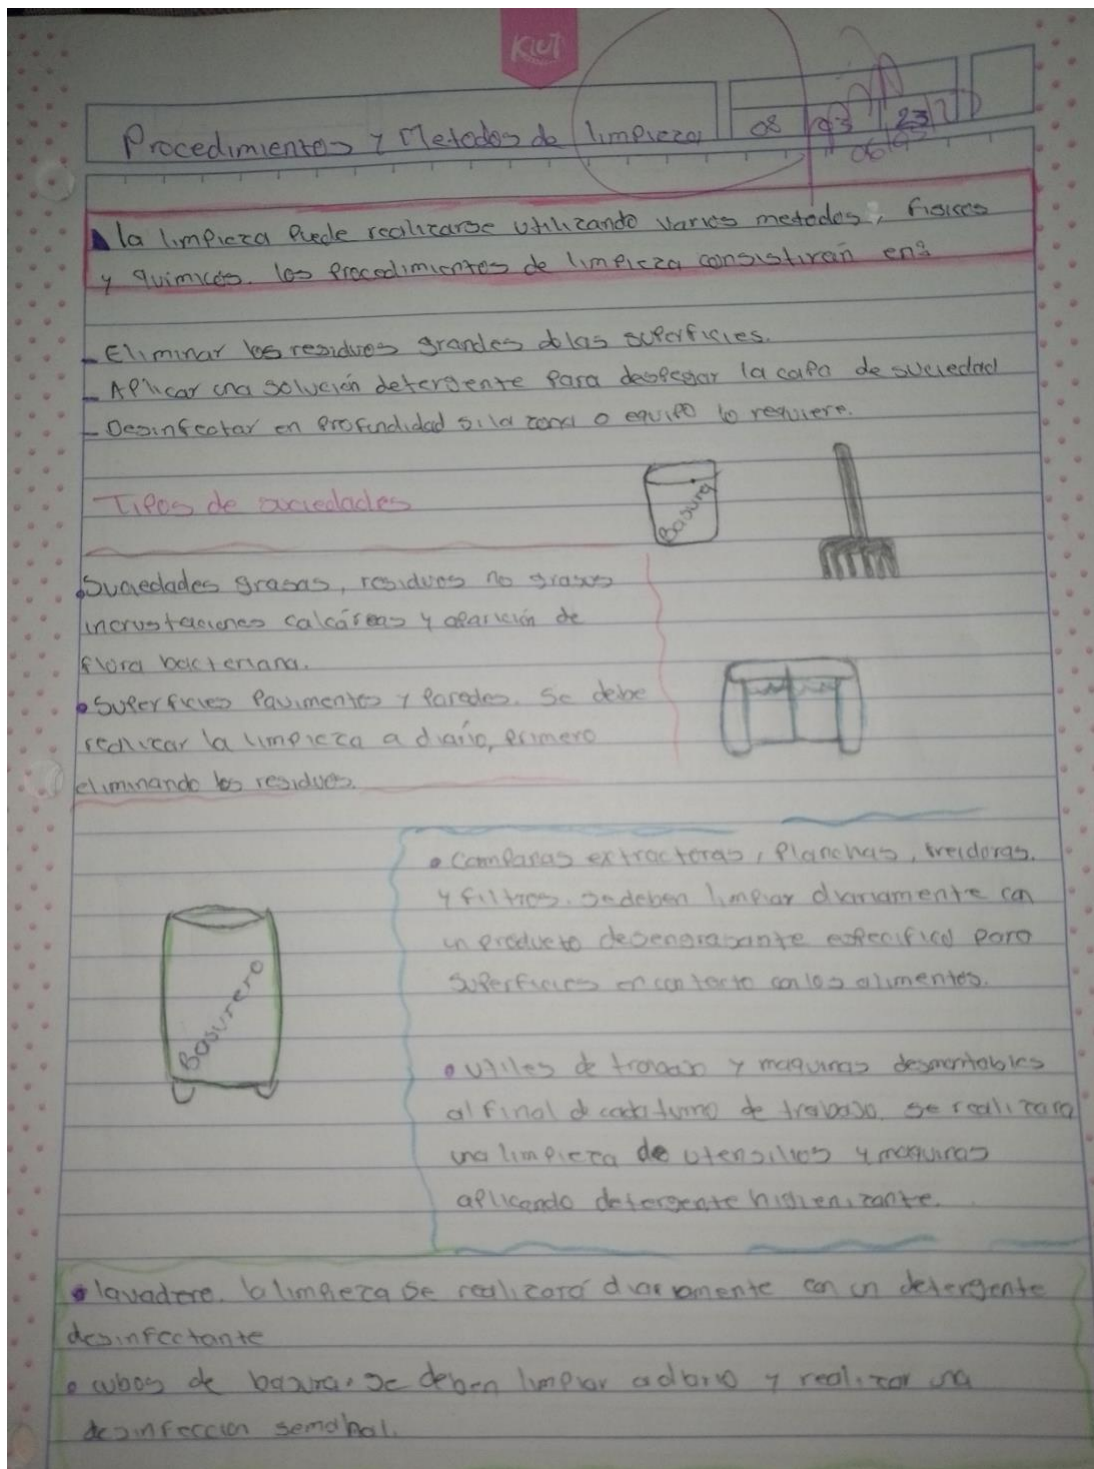 Kiut
Procedimientos y Metodos de limpieza
08 03 23
la limpieza Puede realizarse utilizando varios metodos, fisicos
y quimicos. los Procedimientos de limpieza consistiran en:
- Eliminar los residuos grandes d las superficies.
- Aplicar una solución detergente Para despegar la capa de suciedad
- Desinfectar en Profundidad si la zona o equipo lo requiere.
Tipos de suciedades
Basura
Suciedades grasas, residuos no grasos
incrustaciones calcáreas y aparición de
flora bacteriana.
Superficies Pavimentos y Paredes. Se debe
realizar la limpieza a diario, primero
eliminando los residuos.
Campanas extractoras, Planchas, freidoras.
y filtros. Se deben limpiar diariamente con
un producto desengrasante especifico para
superficies en contacto con los alimentos.
Basurero
utiles de trabajo y maquinas desmontables
al final d cada turno de trabajo. se realizara
una limpieza de utensilios y maquinas
aplicando detergente higienizante.
lavadero. la limpieza se realizará diariamente con un detergente
desinfectante
cubos de basura. Se deben limpiar a diario y realizar una
desinfeccion semanal.